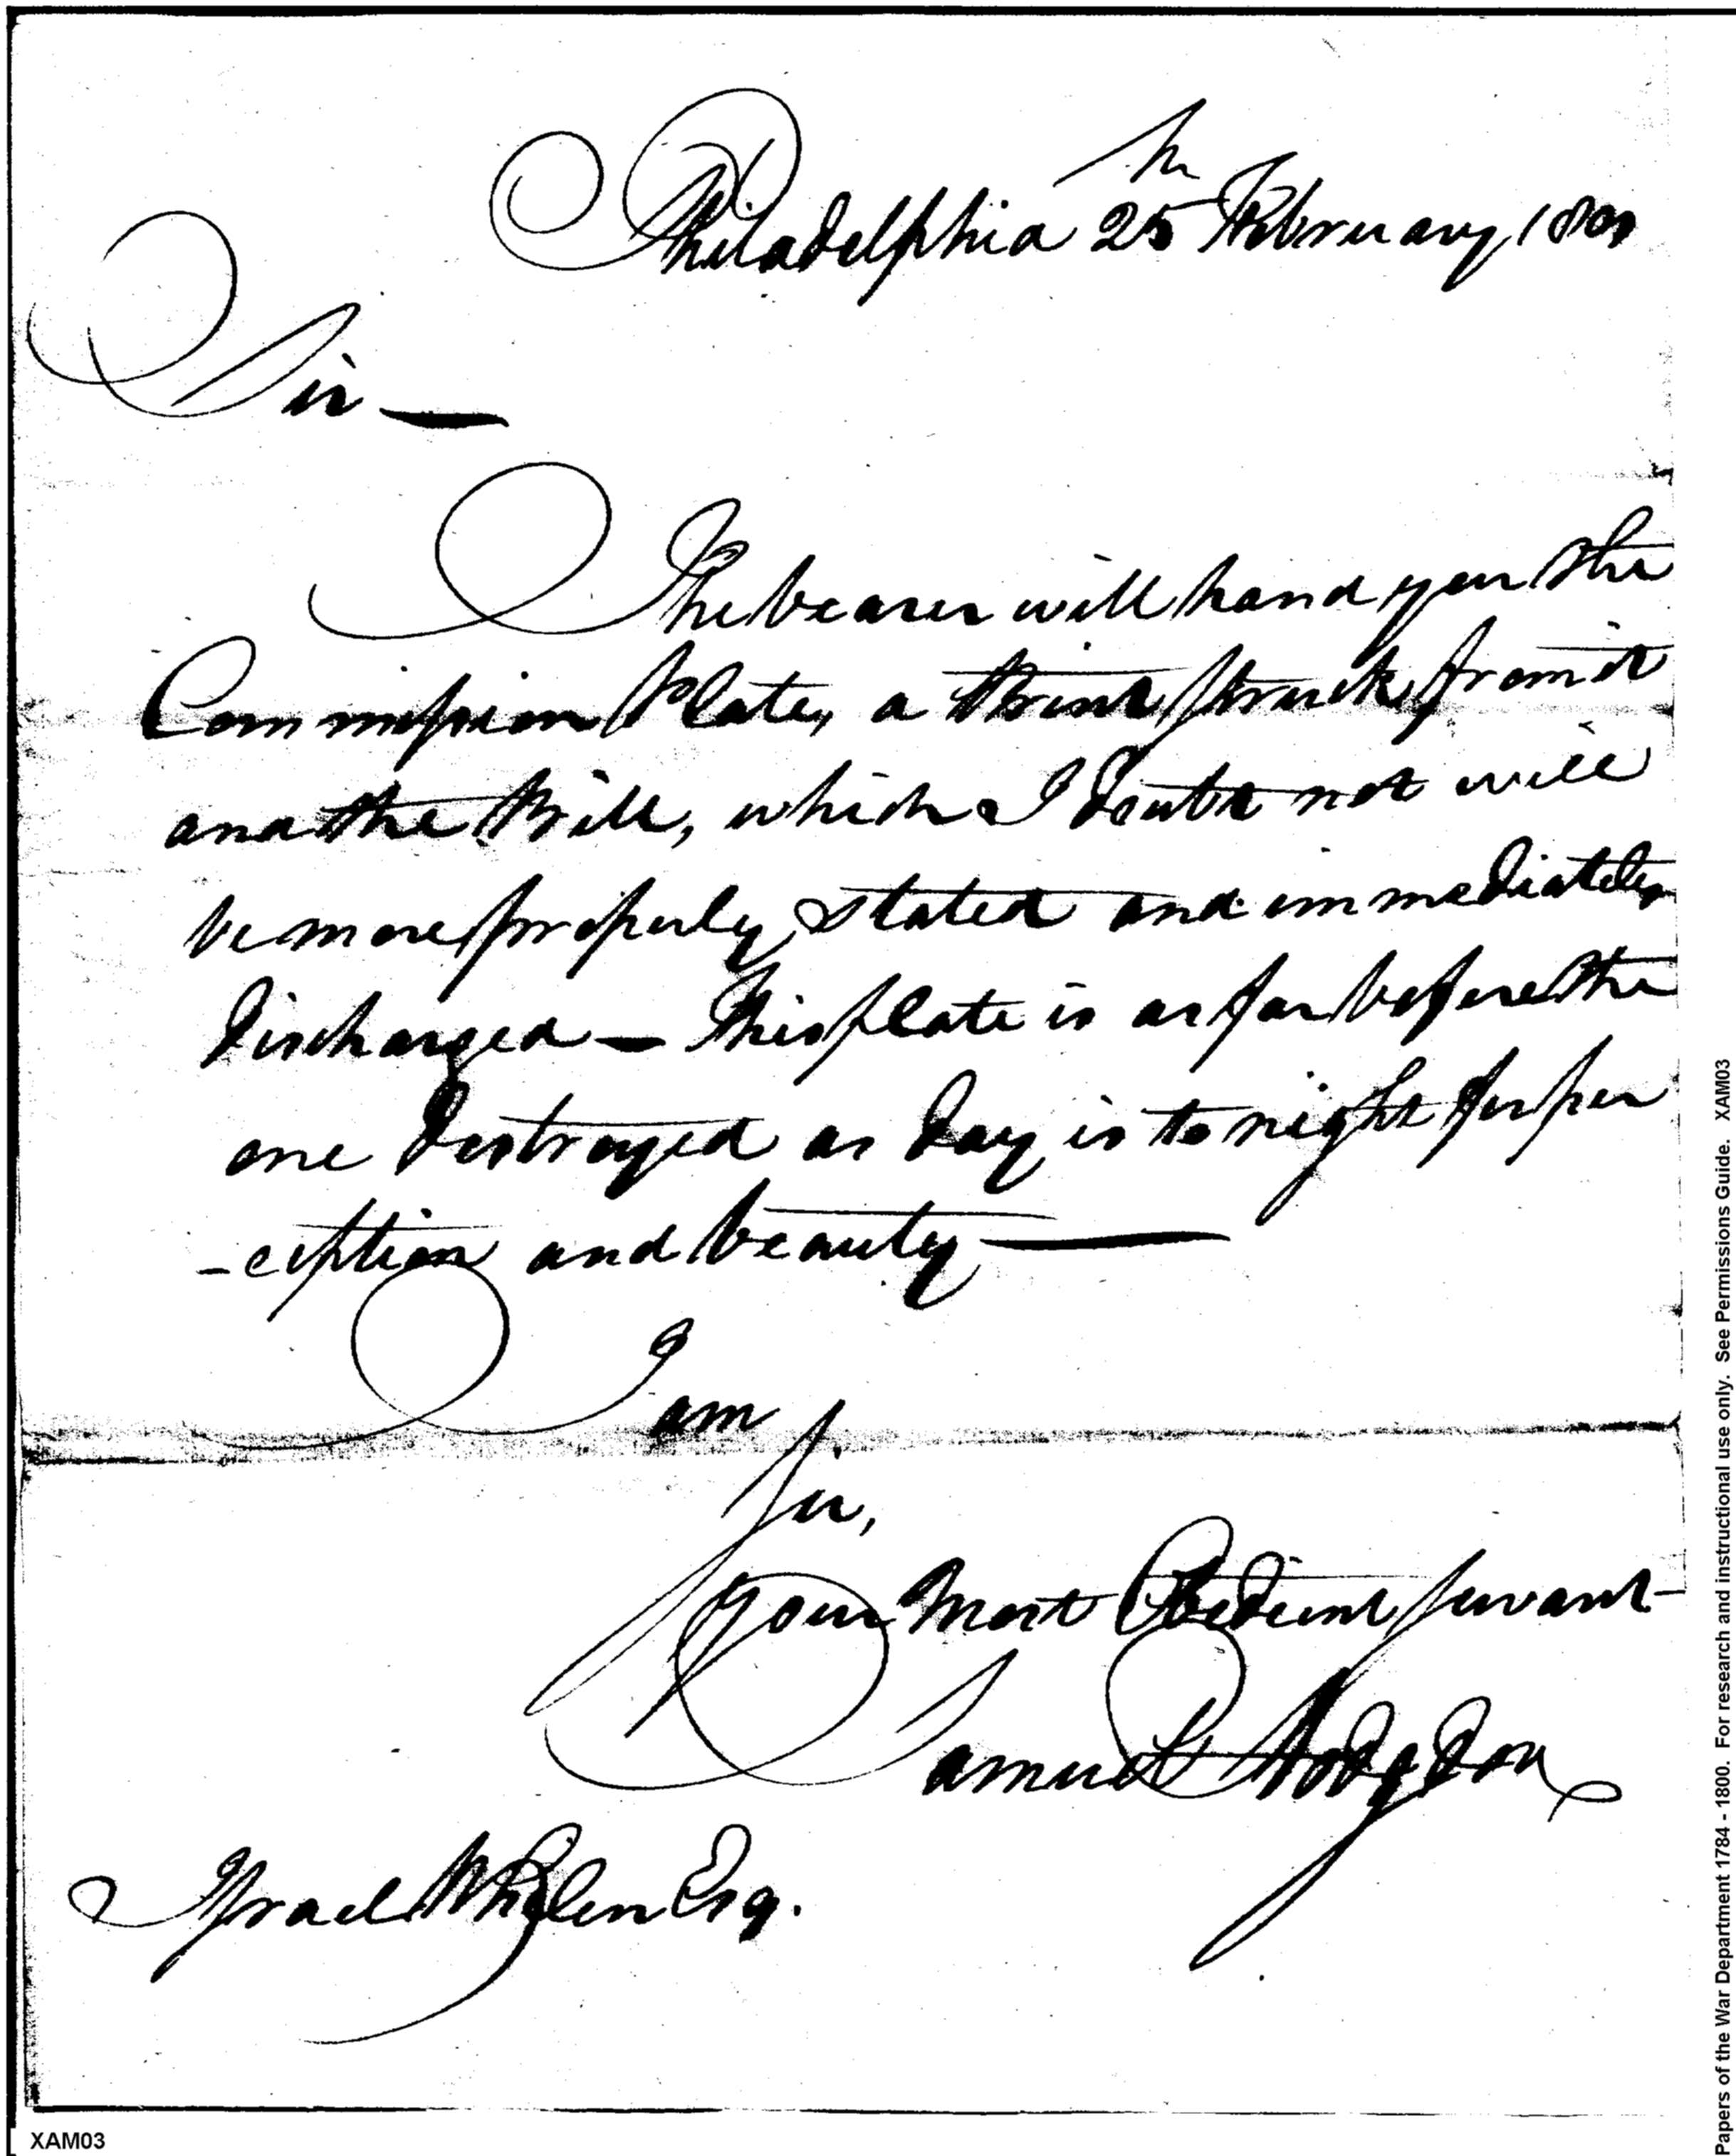 Philadelphia 25th February 1800
Sir —
The bearer will hand you the
Commission Plate, a Print struck from it
and the Bill, which I doubt not will
be more properly stated and immediately
discharged — This plate is as far before the
one destroyed as day is to night for per
-ception and beauty —
I am
Sir,
Your Most Obedient servant
Samuel Hodgdon
Israel Whelen Esq.
Papers of the War Department 1784 - 1800. For research and instructional use only. See Permissions Guide. XAM03
XAM03